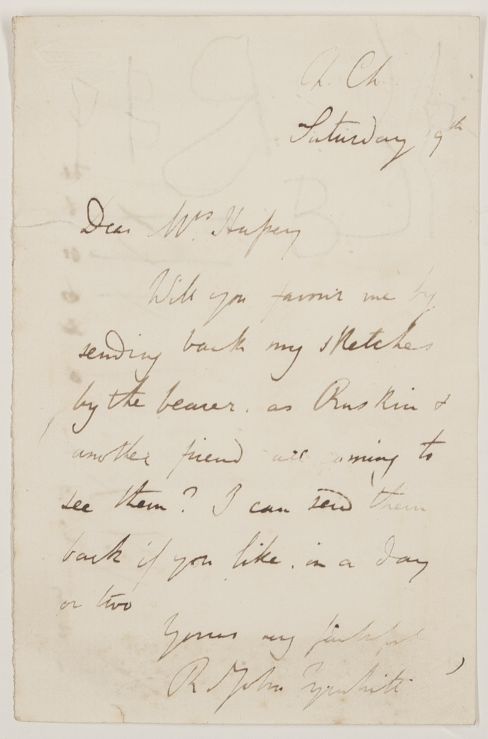 Ch. Ch.
Saturday 9th
Dear Mrs Hussey
Will you favour me by
sending back my sketches
by the bearer. as Ruskin &
another friend are coming to
see them? I can send them
back if you like. in a day
or two
Yours very faithful
R St John Tyrwhitt